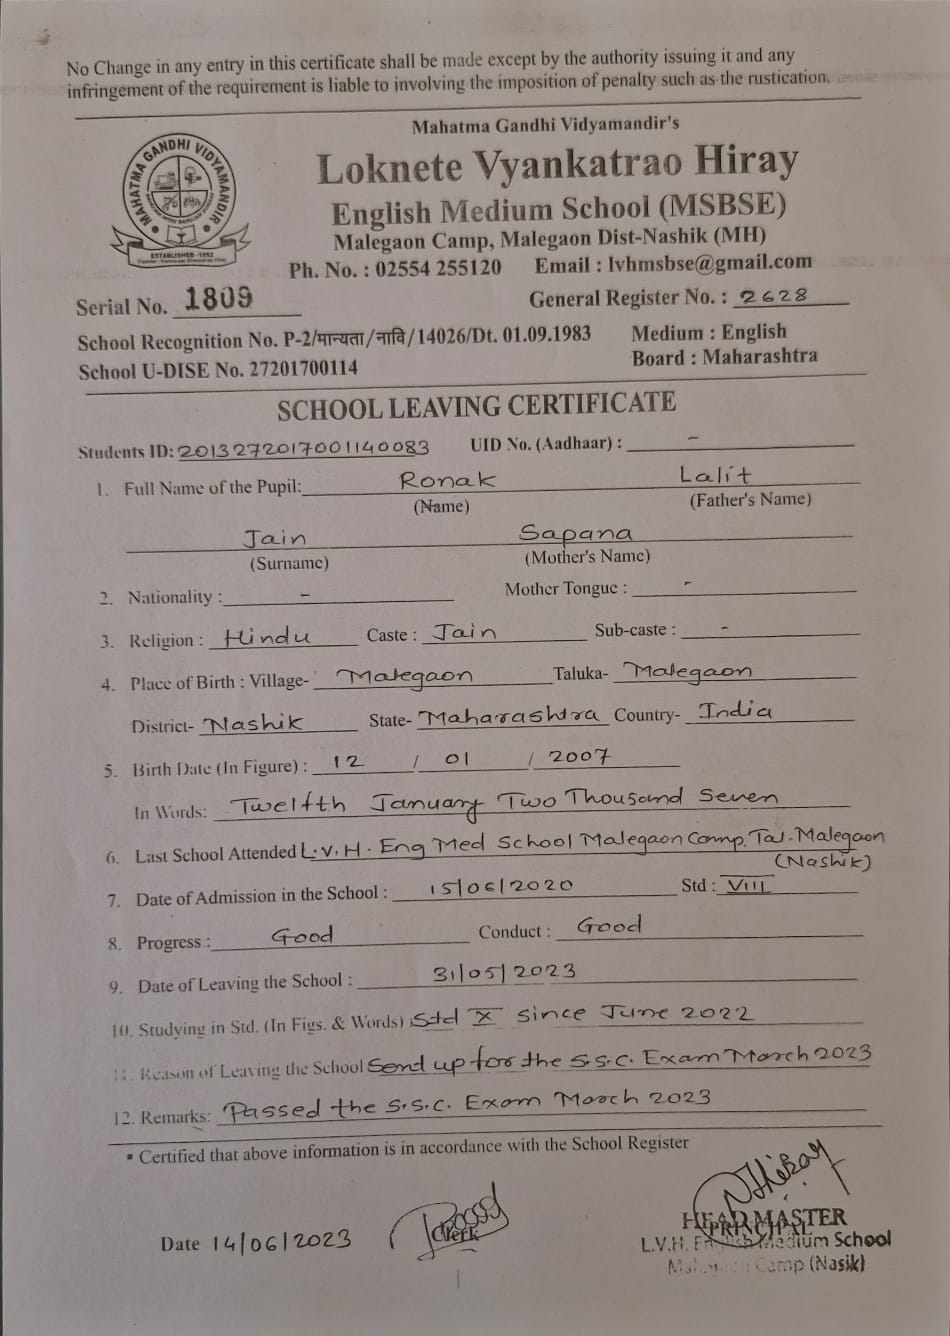 No Change in any entry in this certificate shall be made except by the authority issuing it and any
infringement of the requirement is liable to involving the imposition of penalty such as the rustication.
Mahatma Gandhi Vidyamandir's
MAHATMA GANDHI VIDYAMANDIR
ESTABLISHED -1952
Loknete Vyankatrao Hiray
English Medium School (MSBSE)
Malegaon Camp, Malegaon Dist-Nashik (MH)
Ph. No. : 02554 255120 Email : lvhmsbse@gmail.com
Serial No. 1809 General Register No. : 2628
School Recognition No. P-2/मान्यता/नावि/14026/Dt. 01.09.1983 Medium : English
School U-DISE No. 27201700114 Board : Maharashtra
SCHOOL LEAVING CERTIFICATE
Students ID: 2013272017001140083 UID No. (Aadhaar) : -
1. Full Name of the Pupil: Ronak Lalit
(Name) (Father's Name)
Jain Sapana
(Surname) (Mother's Name)
2. Nationality : - Mother Tongue : -
3. Religion : Hindu Caste : Jain Sub-caste : -
4. Place of Birth : Village- Malegaon Taluka- Malegaon
District- Nashik State- Maharashtra Country- India
5. Birth Date (In Figure) : 12 / 01 / 2007
In Words: Twelfth January Two Thousand Seven
6. Last School Attended L.V.H. Eng Med School Malegaon Camp. Tal. Malegaon
(Nashik)
7. Date of Admission in the School : 15/06/2020 Std : VIII
8. Progress : Good Conduct : Good
9. Date of Leaving the School : 31/05/2023
10. Studying in Std. (In Figs. & Words) : Std X since June 2022
11. Reason of Leaving the School Send up for the S.S.C. Exam March 2023
12. Remarks: Passed the S.S.C. Exam March 2023
Certified that above information is in accordance with the School Register
Date 14/06/2023 Clerk
HEAD MASTER
PRINCIPAL
L.V.H. English Medium School
Malegaon Camp (Nasik)